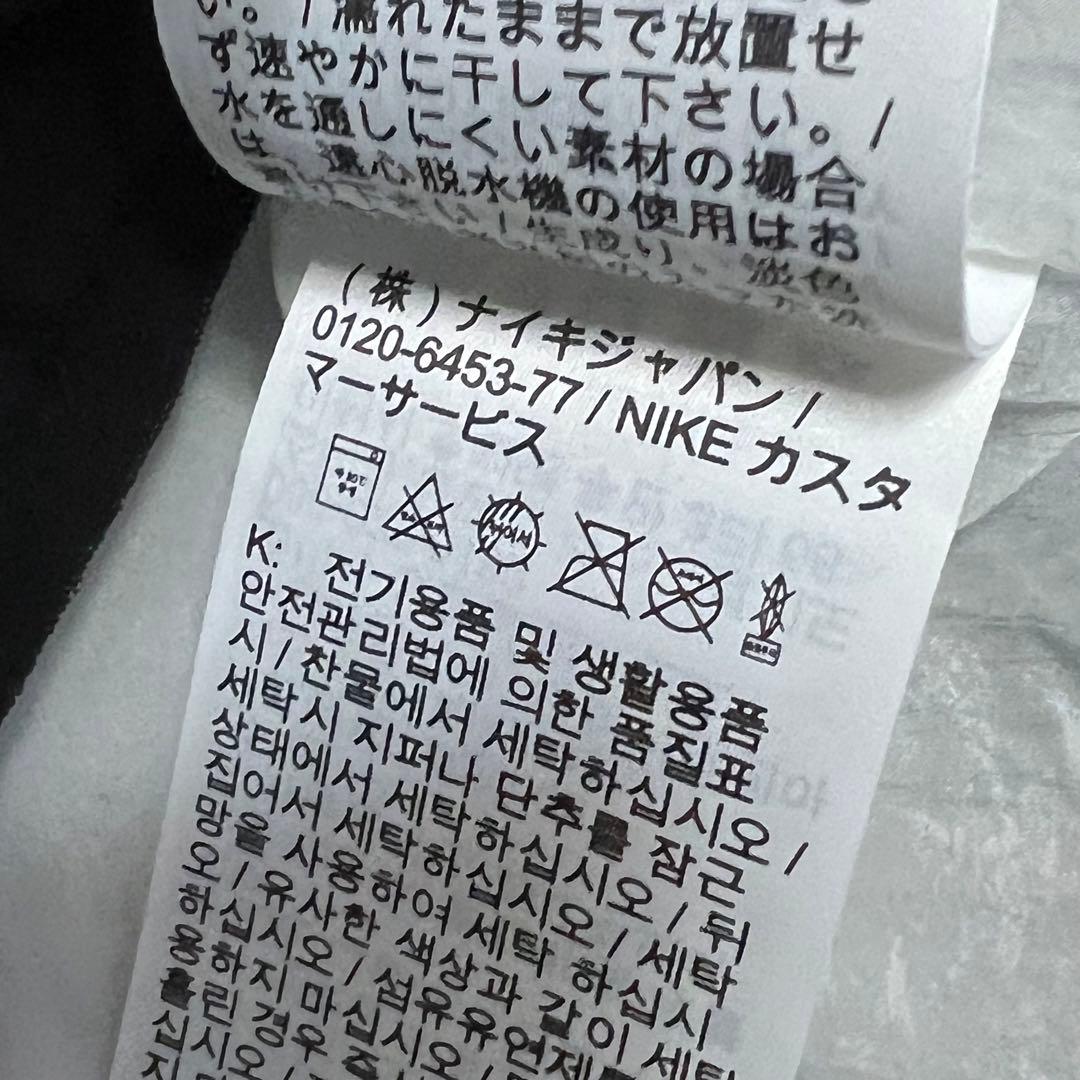 い。/ 濡れたままで放置せ
ず速やかに干して下さい。/
水を通しにくい素材の場合
は、遠心脱水機の使用はお
(株)ナイキジャパン/
0120-6453-77 / NIKE カスタ
マーサービス
K: 전기용품 및 생활용품
안전관리법에 의한 품질표
시 / 찬물에서 세탁하십시오 /
세탁시 지퍼나 단추를 잠근
상태에서 세탁하십시오 / 뒤
집어서 세탁하십시오 / 세탁
망을 사용하여 세탁 하십시
오 / 유사한 색상과 같이 세탁
하십시오 / 섬유유연제를
용하지 마십시오
흘린 경우 즉
십시오 /